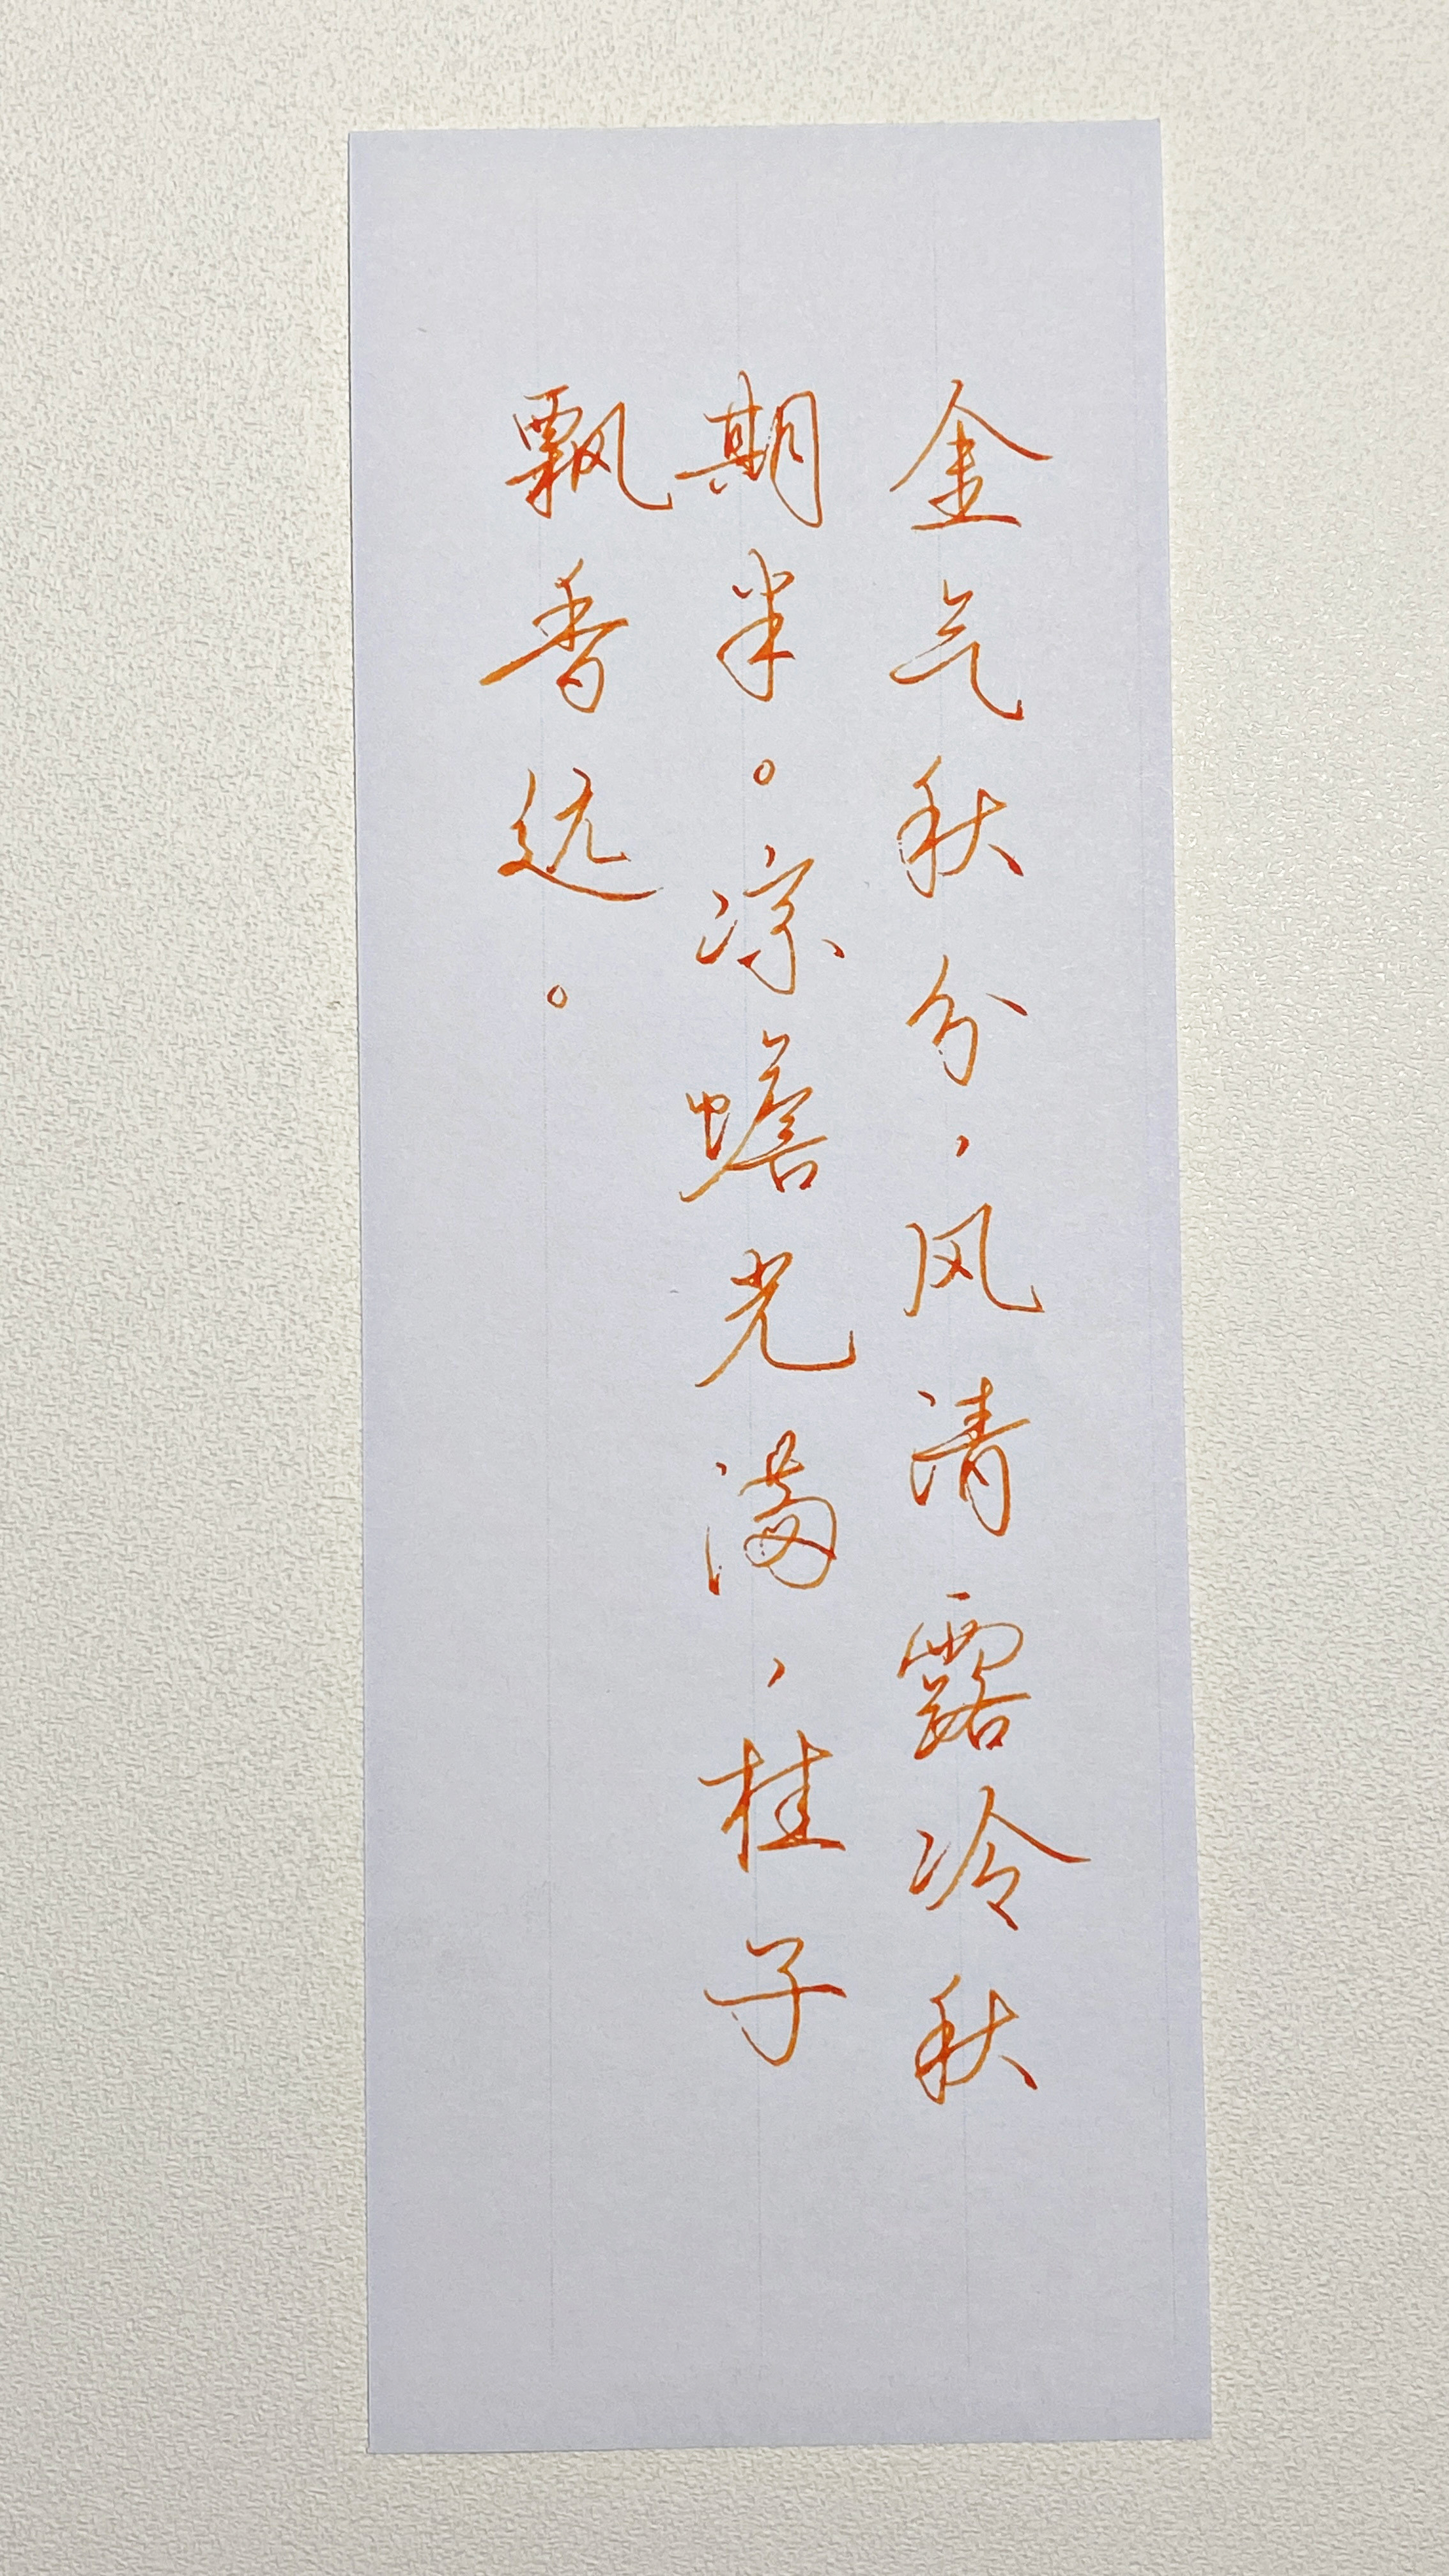 金气秋分，风清露冷秋
期半。凉蟾光满，桂子
飘香远。